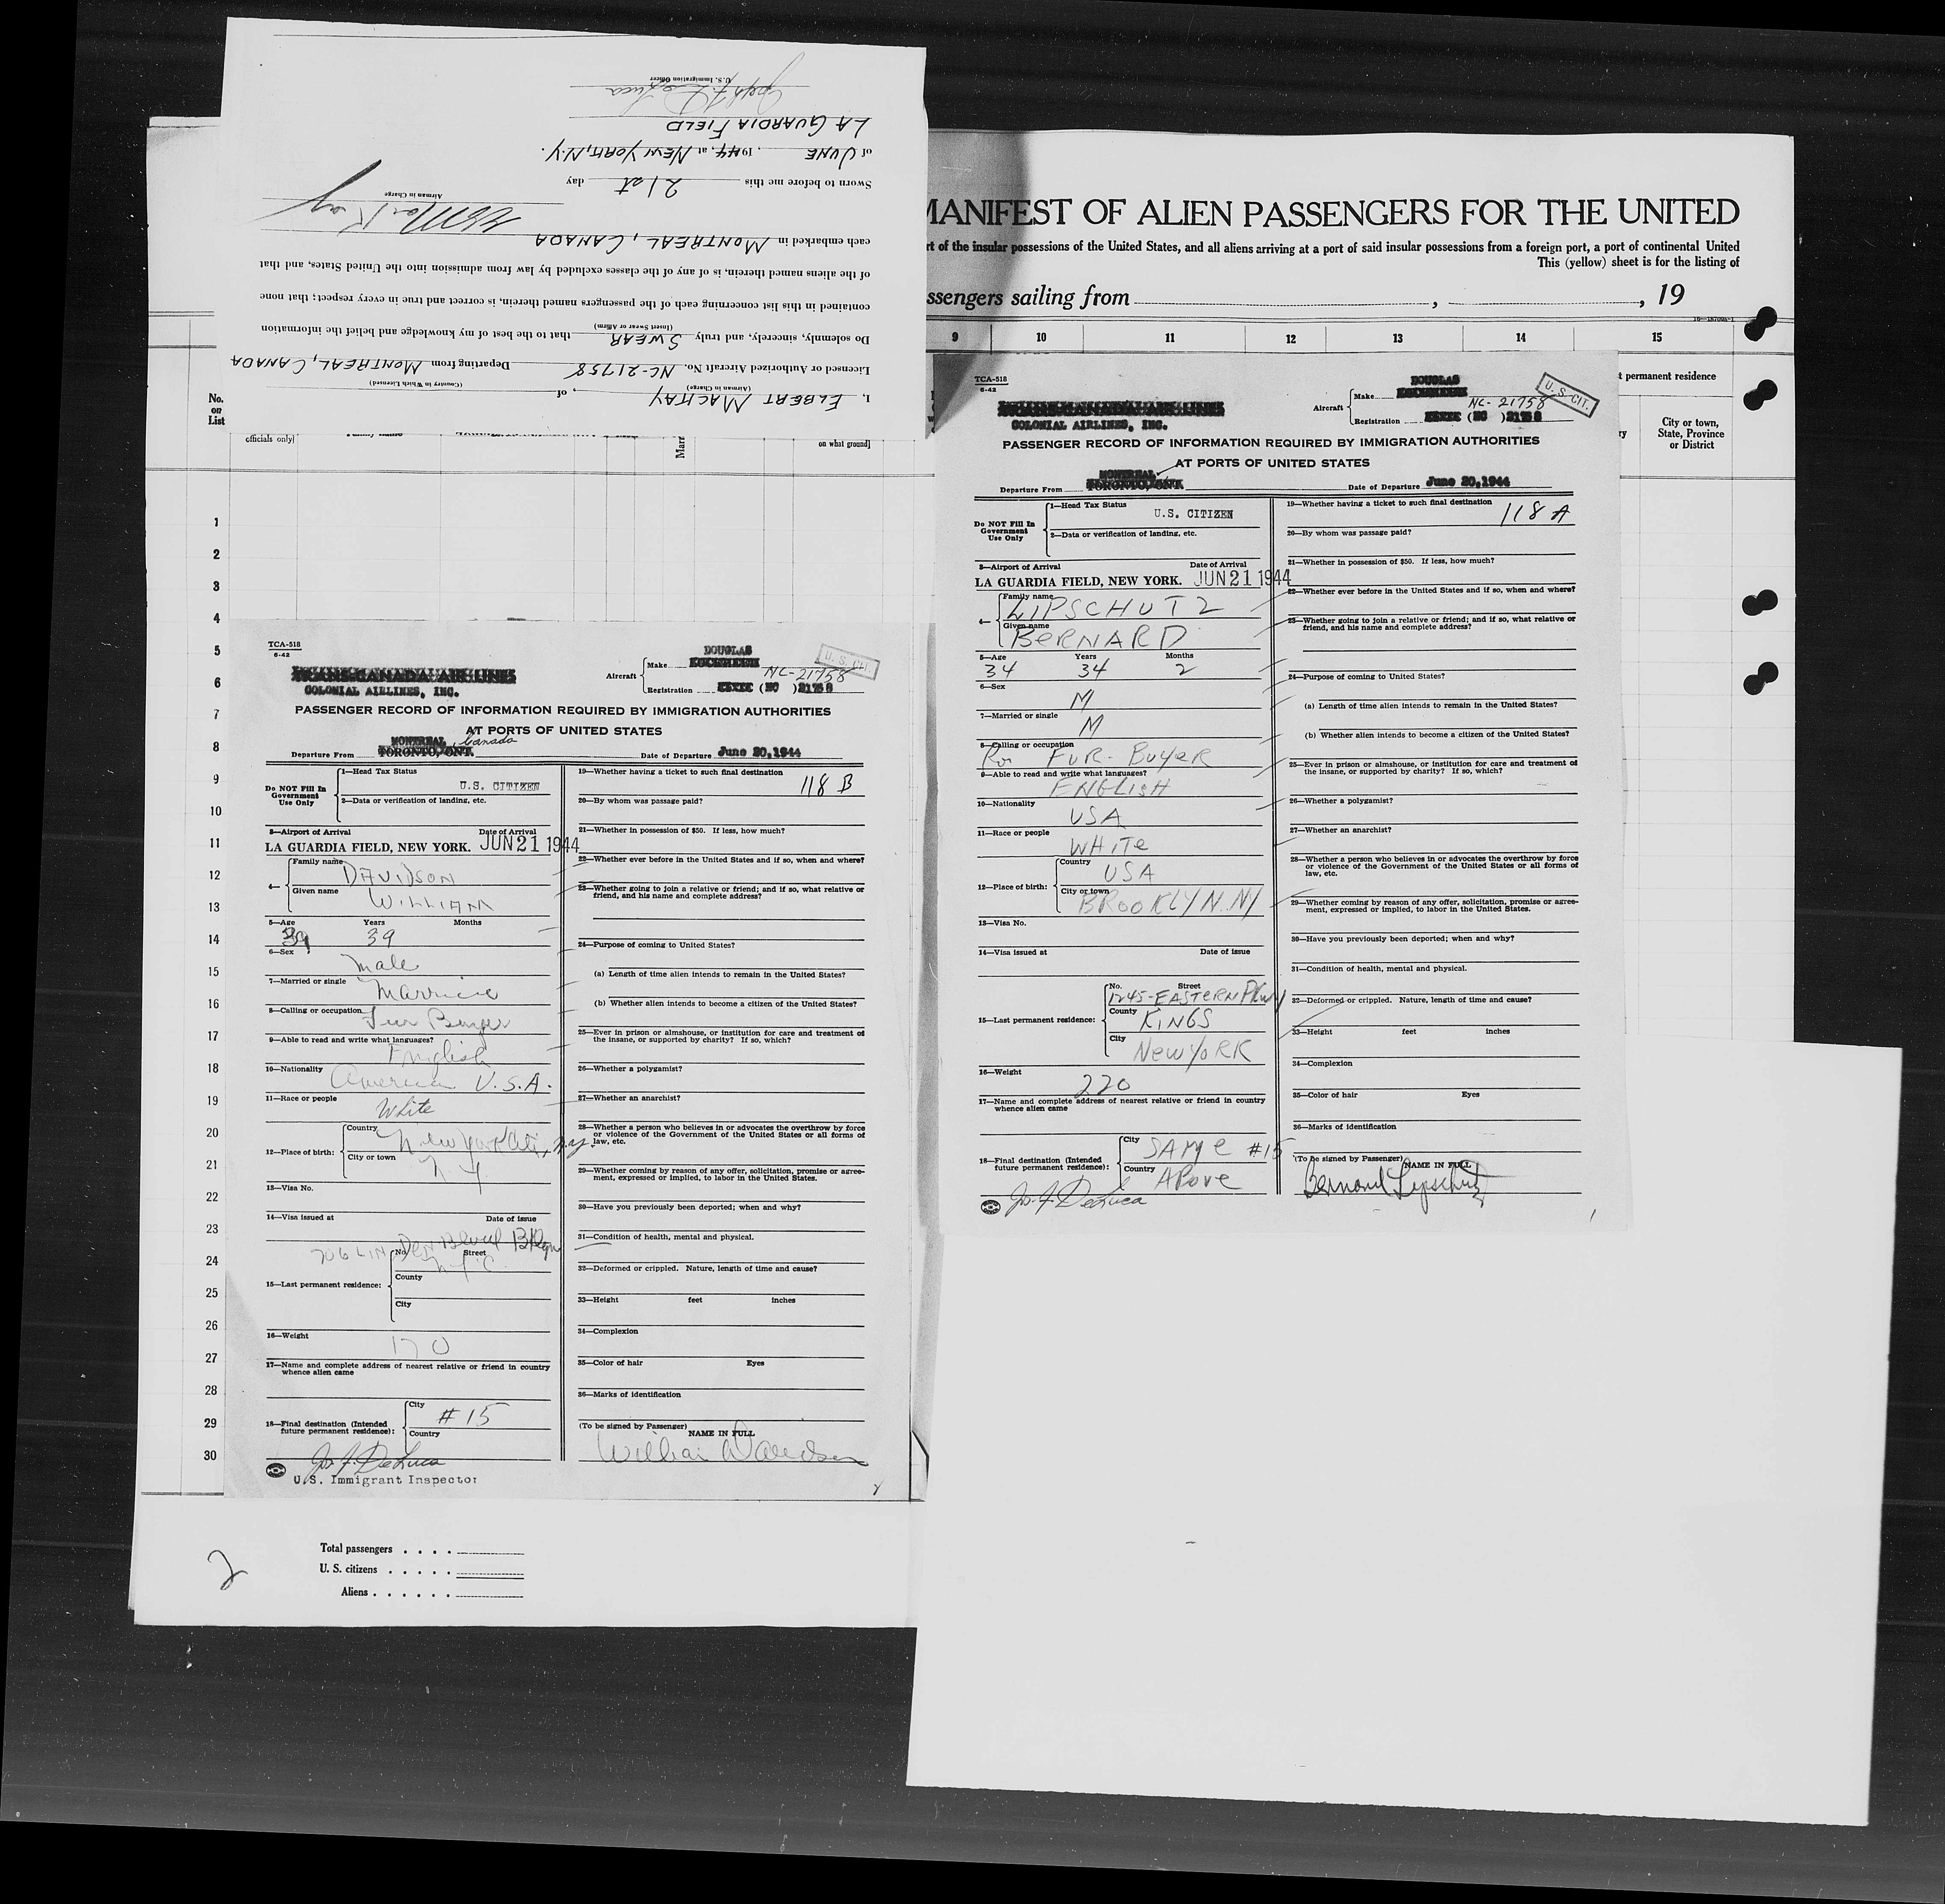 I, ELBERT MACKAY, of
(Airman in Charge) (Country in Which Licensed)
Licensed or Authorized Aircraft No. NC-21758 Departing from MONTREAL, CANADA
Do solemnly, sincerely, and truly SWEAR that to the best of my knowledge and belief the information
(Insert Swear or Affirm)
contained in this list concerning each of the passengers named therein, is correct and true in every respect; that none
of the aliens named therein, is of any of the classes excluded by law from admission into the United States, and that
each embarked in MONTREAL, CANADA
Airman in Charge
Sworn to before me this 21st day
of JUNE, 1944, at NEW YORK, N.Y.
LA GUARDIA FIELD
U.S. Immigration Officer
MANIFEST OF ALIEN PASSENGERS FOR THE UNITED
rt of the insular possessions of the United States, and all aliens arriving at a port of said insular possessions from a foreign port, a port of continental United
This (yellow) sheet is for the listing of
ssengers sailing from , , 19
9 10 11 12 13 14 15
t permanent residence
City or town,
State, Province
or District
No.
on
List
officials only]
on what ground]
1
2
3
4
5
6
7
8
9
10
11
12
13
14
15
16
17
18
19
20
21
22
23
24
25
26
27
28
29
30
TCA-518
6-42
TRANS-CANADA AIR LINES
COLONIAL AIRLINES, INC.
DOUGLAS
Aircraft Make
NC-21758
Registration (NC ) 21758
U.S. CIT.
PASSENGER RECORD OF INFORMATION REQUIRED BY IMMIGRATION AUTHORITIES
AT PORTS OF UNITED STATES
MONTREAL, Canada
Departure From TORONTO, ONT. Date of Departure June 20,1944
Do NOT Fill In
Government
Use Only
1—Head Tax Status
U.S. CITIZEN
2—Data or verification of landing, etc.
3—Airport of Arrival Date of Arrival
LA GUARDIA FIELD, NEW YORK. JUN 21 1944
4— Family name DAVIDSON
Given name WILLIAM
5—Age Years Months
39 39
6—Sex Male
7—Married or single Married
8—Calling or occupation Fur Buyer
9—Able to read and write what languages? English
10—Nationality American U.S.A.
11—Race or people White
12—Place of birth: Country New York City, N.Y.
City or town N Y
13—Visa No.
14—Visa issued at Date of issue
706 LINDEN Blvd Bklyn
No. Street
N Y C
15—Last permanent residence: County
City
16—Weight 170
17—Name and complete address of nearest relative or friend in country
whence alien came
18—Final destination (Intended
future permanent residence): City # 15
Country
Jos. F. DeLuca
U.S. Immigrant Inspector
19—Whether having a ticket to such final destination
118 B
20—By whom was passage paid?
21—Whether in possession of $50. If less, how much?
22—Whether ever before in the United States and if so, when and where?
23—Whether going to join a relative or friend; and if so, what relative or
friend, and his name and complete address?
24—Purpose of coming to United States?
(a) Length of time alien intends to remain in the United States?
(b) Whether alien intends to become a citizen of the United States?
25—Ever in prison or almshouse, or institution for care and treatment of
the insane, or supported by charity? If so, which?
26—Whether a polygamist?
27—Whether an anarchist?
28—Whether a person who believes in or advocates the overthrow by force
or violence of the Government of the United States or all forms of
law, etc.
29—Whether coming by reason of any offer, solicitation, promise or agree-
ment, expressed or implied, to labor in the United States.
30—Have you previously been deported; when and why?
31—Condition of health, mental and physical.
32—Deformed or crippled. Nature, length of time and cause?
33—Height feet inches
34—Complexion
35—Color of hair Eyes
36—Marks of identification
(To be signed by Passenger) NAME IN FULL
William Davidson
Total passengers . . . .
U. S. citizens . . . . .
Aliens . . . . . .
2
TCA-518
6-42
TRANS-CANADA AIR LINES
COLONIAL AIRLINES, INC.
DOUGLAS
Aircraft Make
NC-21758
Registration (NC ) 21758
U.S. CIT.
PASSENGER RECORD OF INFORMATION REQUIRED BY IMMIGRATION AUTHORITIES
AT PORTS OF UNITED STATES
MONTREAL
Departure From TORONTO, ONT. Date of Departure June 20,1944
Do NOT Fill In
Government
Use Only
1—Head Tax Status
U.S. CITIZEN
2—Data or verification of landing, etc.
3—Airport of Arrival Date of Arrival
LA GUARDIA FIELD, NEW YORK. JUN 21 1944
4— Family name LIPSCHUTZ
Given name BERNARD
5—Age Years Months
34 34 2
6—Sex M
7—Married or single M
8—Calling or occupation FUR-BUYER
9—Able to read and write what languages? ENGLISH
10—Nationality USA
11—Race or people WHITE
12—Place of birth: Country USA
City or town BROOKLYN. NY
13—Visa No.
14—Visa issued at Date of issue
No. Street
1245-EASTERN PKWY
15—Last permanent residence: County KINGS
City NEW YORK
16—Weight 220
17—Name and complete address of nearest relative or friend in country
whence alien came
18—Final destination (Intended
future permanent residence): City SAME #15
Country ABOVE
Jos. F. DeLuca
19—Whether having a ticket to such final destination
118 A
20—By whom was passage paid?
21—Whether in possession of $50. If less, how much?
22—Whether ever before in the United States and if so, when and where?
23—Whether going to join a relative or friend; and if so, what relative or
friend, and his name and complete address?
24—Purpose of coming to United States?
(a) Length of time alien intends to remain in the United States?
(b) Whether alien intends to become a citizen of the United States?
25—Ever in prison or almshouse, or institution for care and treatment of
the insane, or supported by charity? If so, which?
26—Whether a polygamist?
27—Whether an anarchist?
28—Whether a person who believes in or advocates the overthrow by force
or violence of the Government of the United States or all forms of
law, etc.
29—Whether coming by reason of any offer, solicitation, promise or agree-
ment, expressed or implied, to labor in the United States.
30—Have you previously been deported; when and why?
31—Condition of health, mental and physical.
32—Deformed or crippled. Nature, length of time and cause?
33—Height feet inches
34—Complexion
35—Color of hair Eyes
36—Marks of identification
(To be signed by Passenger) NAME IN FULL
Bernard Lipschutz